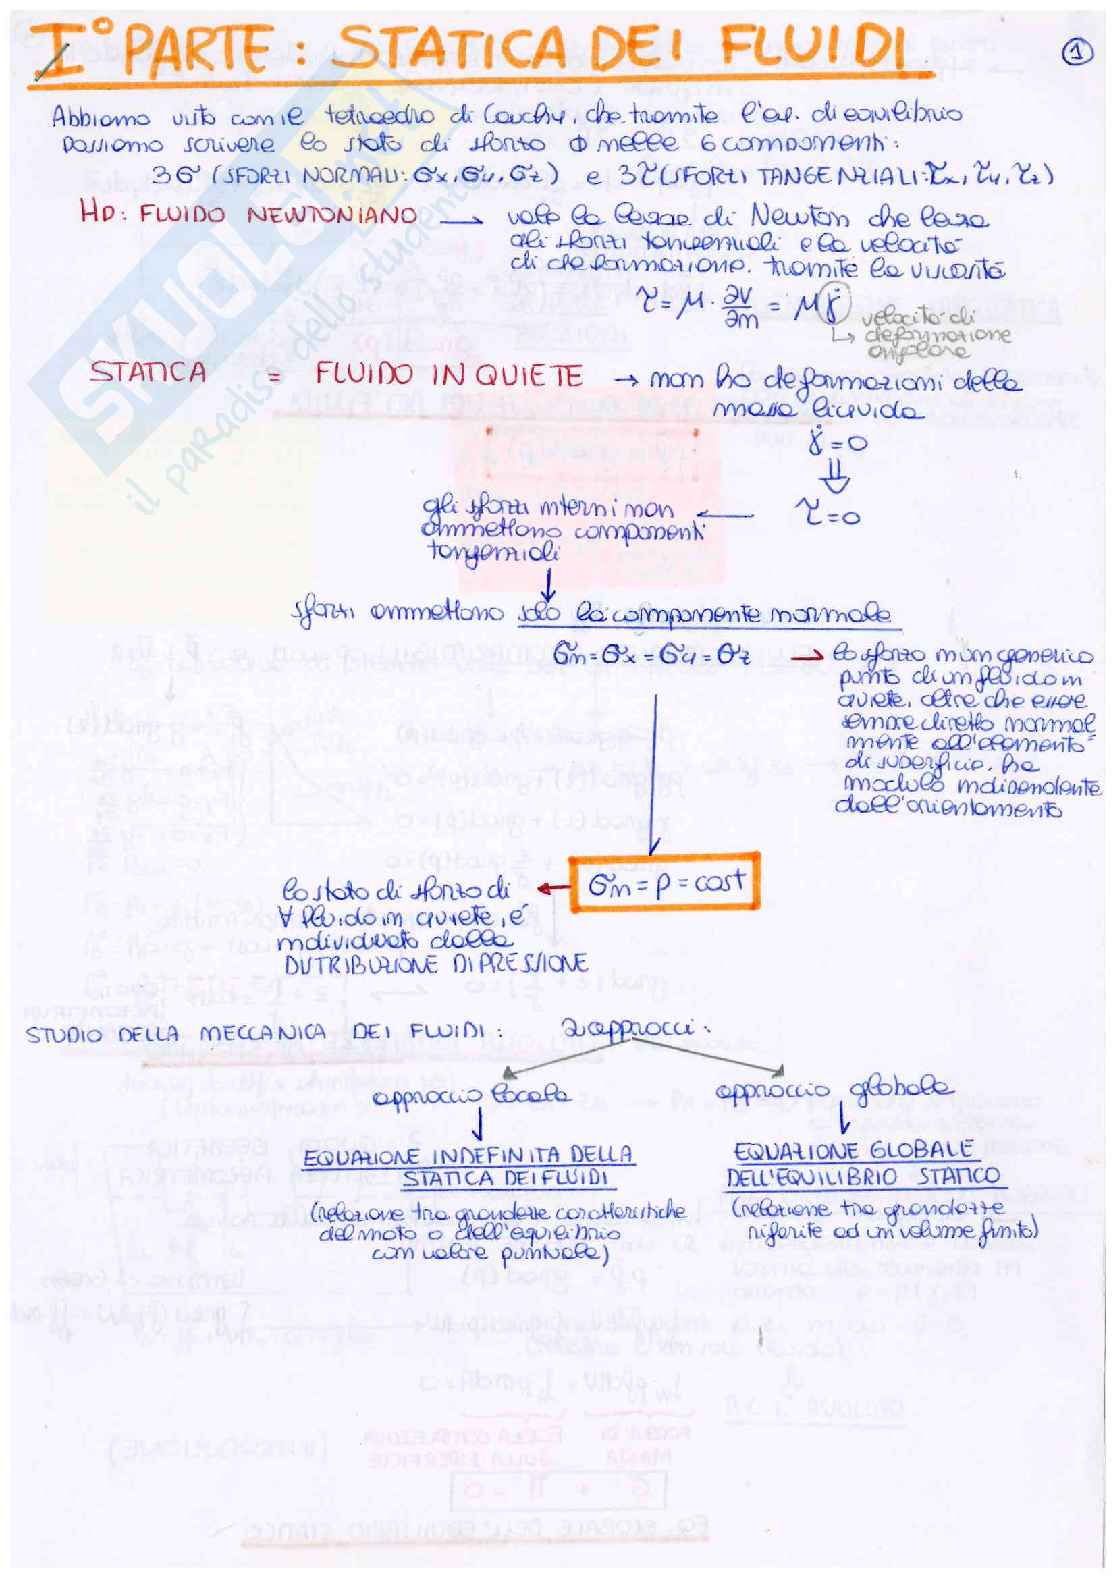 I° PARTE: STATICA DEI FLUIDI
1
Abbiamo visto com il tetraedro di Cauchy, che tramite l'eq. di equilibrio
possiamo scrivere lo stato di sforzo Φ nelle 6 componenti:
3σ (SFORZI NORMALI: σx, σy, σz) e 3τ (SFORZI TANGENZIALI: τx, τy, τz)
HP: FLUIDO NEWTONIANO → vale la legge di Newton che lega
gli sforzi tangenziali e la velocità
di deformazione, tramite la viscosità
τ = μ · ∂v/∂n = μ γ̇
↳ velocità di
deformazione
angolare
STATICA = FLUIDO IN QUIETE → non ho deformazioni della
massa liquida
γ̇ = 0
⇓
gli sforzi interni non ← τ = 0
ammettono componenti
tangenziali
↓
sforzi ammettono solo la componente normale
σn = σx = σy = σz → lo sforzo in un generico
punto di un fluido in
quiete, oltre che essere
sempre diretto normal
mente all'elemento
di superficie, ha
modulo indipendente
dall'orientamento
σn = p = cost
lo stato di sforzo di ←
∀ fluido in quiete, è
individuato dalla
DISTRIBUZIONE DI PRESSIONE
STUDIO DELLA MECCANICA DEI FLUIDI: 2 approcci:
approccio locale approccio globale
EQUAZIONE INDEFINITA DELLA
STATICA DEI FLUIDI
(relazione tra grandezze caratteristiche
del moto o dell'equilibrio
con valore puntuale)
EQUAZIONE GLOBALE
DELL'EQUILIBRIO STATICO
(relazione tra grandezze
riferite ad un volume finito)
SKUOLA.net
il paradiso dello studente